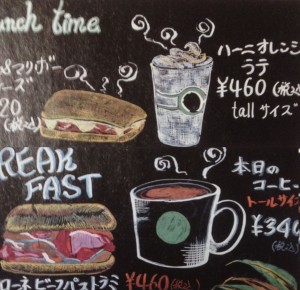 unch time
ハーニオレンジ
ラテ
¥460(税込)
tallサイズ
&マリボー
ーズ
20
(税込)
BREAK
FAST
本日の
コーヒー
トールサイズ
¥344
(税込)
ローネビーフパストラミ ¥460(税込)